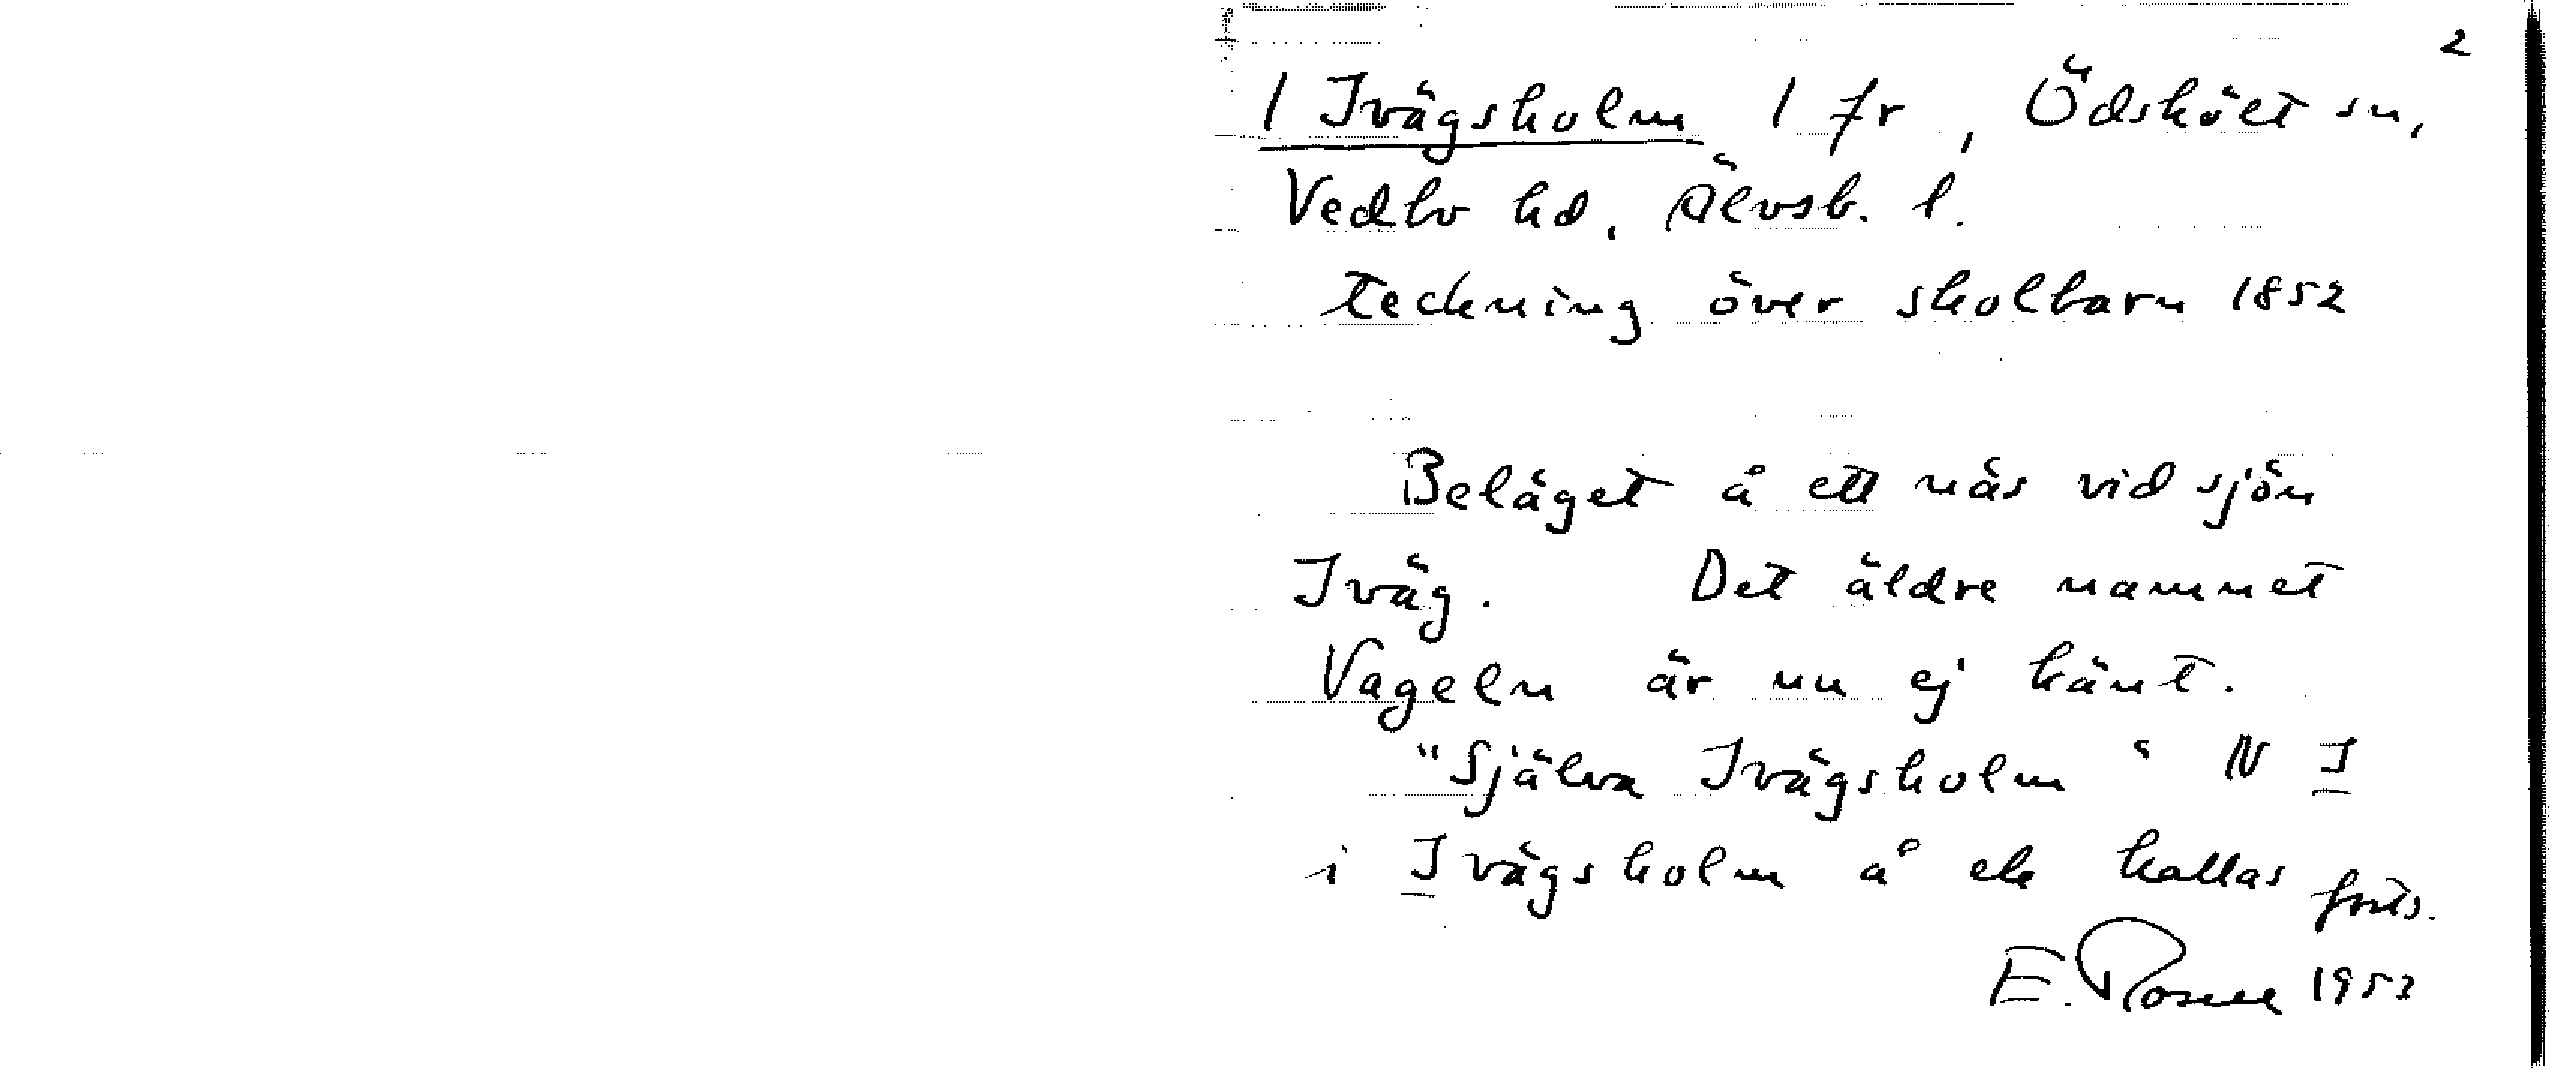 2
1 Ivägsholm 1 fr, Ödskölt sn,
Vedbo hd, Älvsb. l.
teckning över skolbarn 1852
Beläget å ett näs vid sjön
Iväg. Det äldre namnet
Vageln är nu ej känt.
"Själva Ivägsholm" N I
i Ivägsholm å ek kallas forts.
E. Rosell 1952